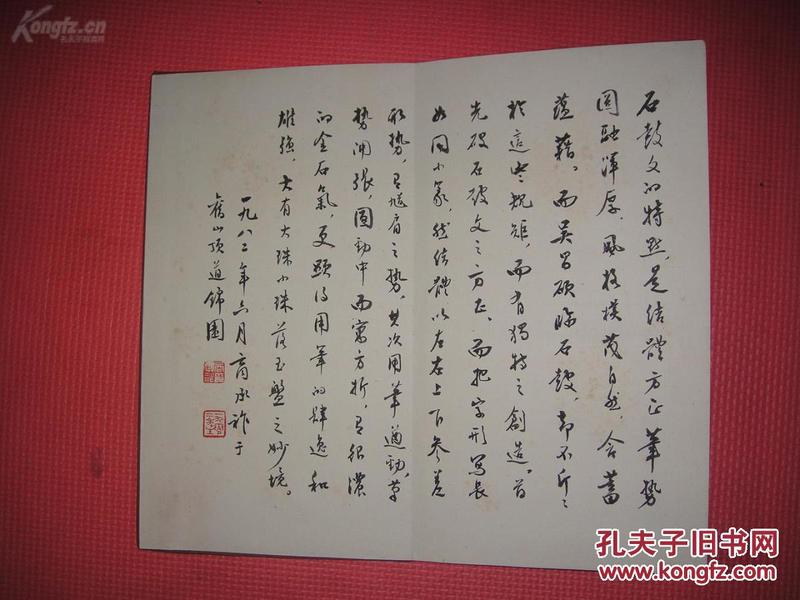 石鼓文的特點，是結體方正筆勢
圓融渾厚，風格樸茂自然，含蓄
蘊藉。而吴昌碩臨石鼓，却不斤斤
於這些規矩，而有獨特之創造。首
先破石鼓文之方正，而把字形寫長
如同小篆，然結體以左右上下參差
取勢，有聳肩之勢，其次用筆遒勁，草
勢開張，圓勁中而寓方折，有很濃
的金石氣，更顯得用筆的肆逸和
雄强，大有大珠小珠落玉盤之妙境。
一九八二年六月商承祚于
舊山頂道錦園
Kongfz.cn
孔夫子旧书网
www.kongfz.com